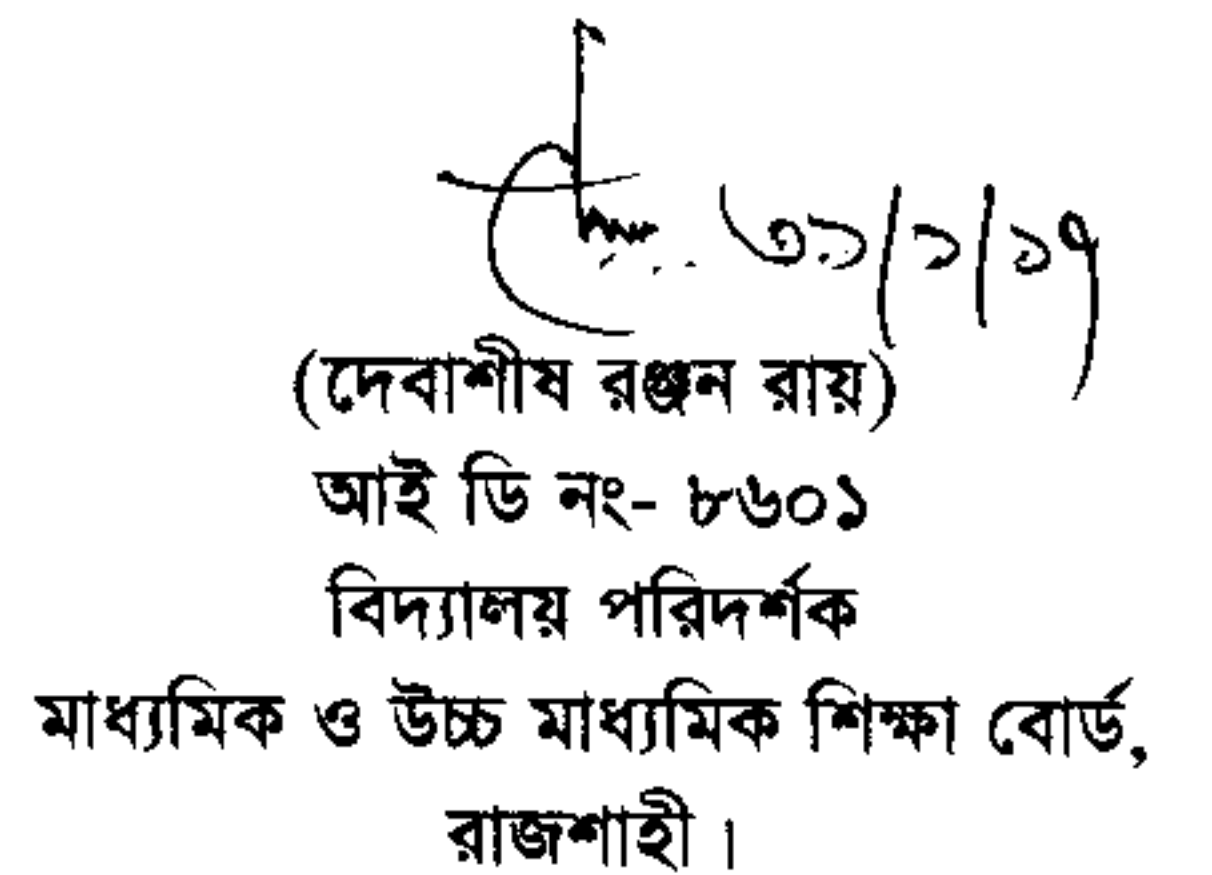 ৩১/১/১৭
(দেবাশীষ রঞ্জন রায়)
আই ডি নং- ৮৬০১
বিদ্যালয় পরিদর্শক
মাধ্যমিক ও উচ্চ মাধ্যমিক শিক্ষা বোর্ড,
রাজশাহী।